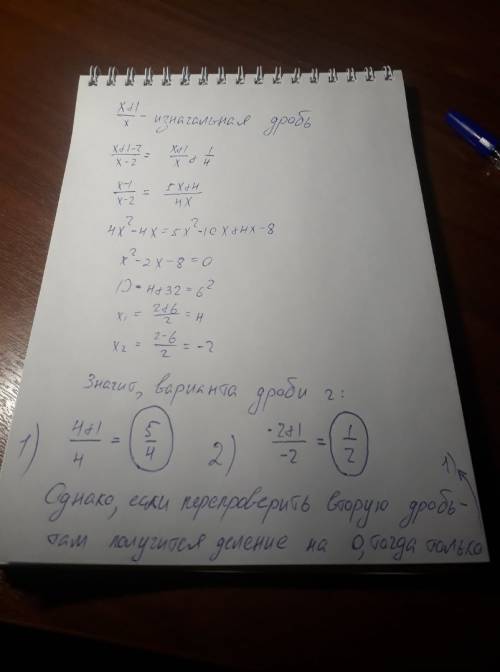 x+1/x - изначальная дробь
x+1-2/x-2 = x+1/x + 1/4
x-1/x-2 = 5x+4/4x
4x²-4x=5x²-10x+4x-8
x²-2x-8=0
D=4+32=6²
x₁ = 2+6/2 = 4
x₂ = 2-6/2 = -2
Значит, варианта дроби 2:
1) 4+1/4 = 5/4 2) -2+1/-2 = 1/2
1)
Однако, если перепроверить вторую дробь-
там получится деление на 0, тогда только